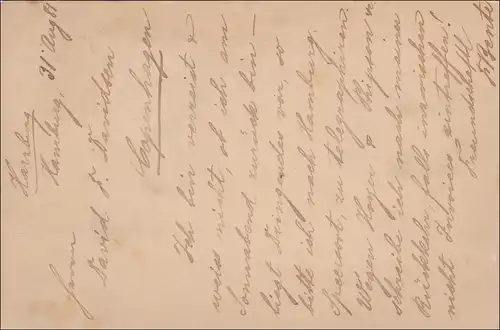 Harburg
Hamburg, 31 Aug 81
Herrn
David S. Davidsen
Copenhagen
Ich bin verreist &
weiss nicht, ob ich am
Sonnabend zurück bin –
liegt Dringendes vor, so
bitte ich nach Hamburg,
zu telegraphiren.
Wegen Hoyer &
schreibe ich nach meiner
Rückkehr, falls inzwischen
nicht Invoices eintreffen!